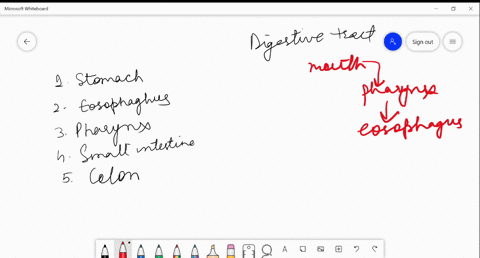 Microsoft Whiteboard
Sign out
Digestive tract
1. Stomach
2. Eosophaghus
3. Pharynx
4. Small intestine
5. Colon
mouth
Pharynx
eosophagus